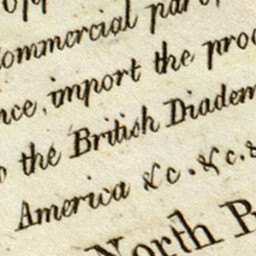 ommercial par
nce, import the pro
the British Diadem
America &c. &c. &
North B